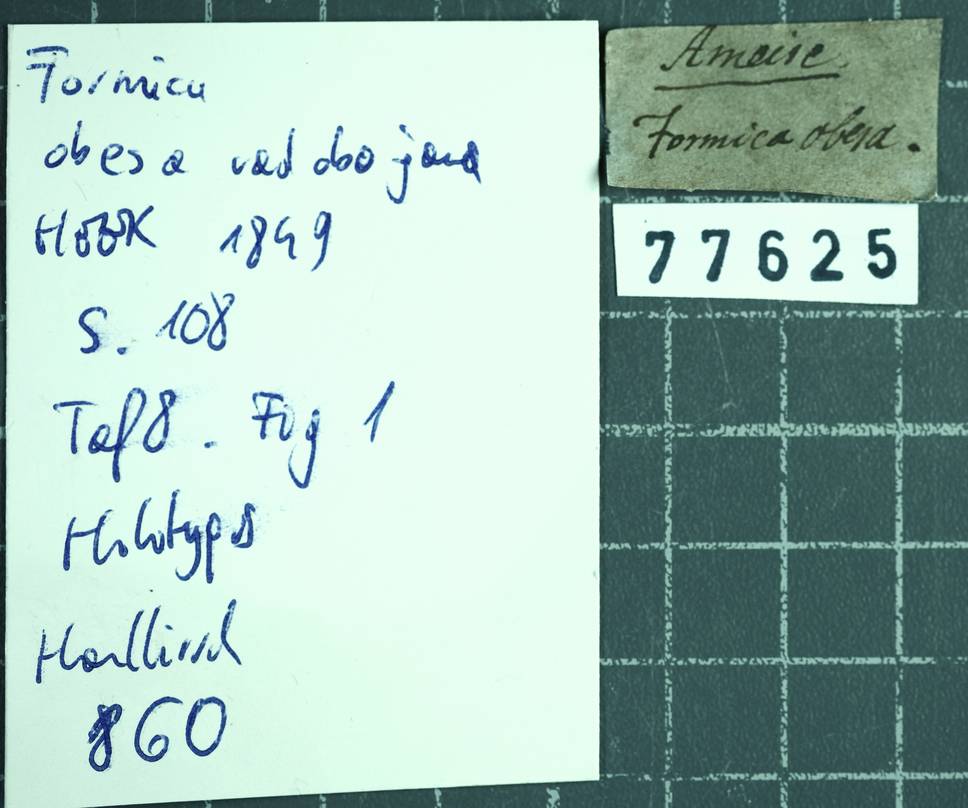 Formica
obesa radobojana
HEER 1849
S. 108
Taf 8. Fig 1
Holotypus
Handlirsch
860
Ameise.
Formica obesa.
77625